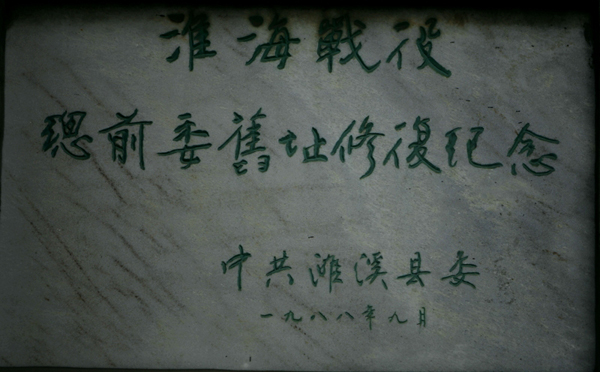 淮海戰役
總前委舊址修復紀念
中共濉溪县委
一九八八年九月